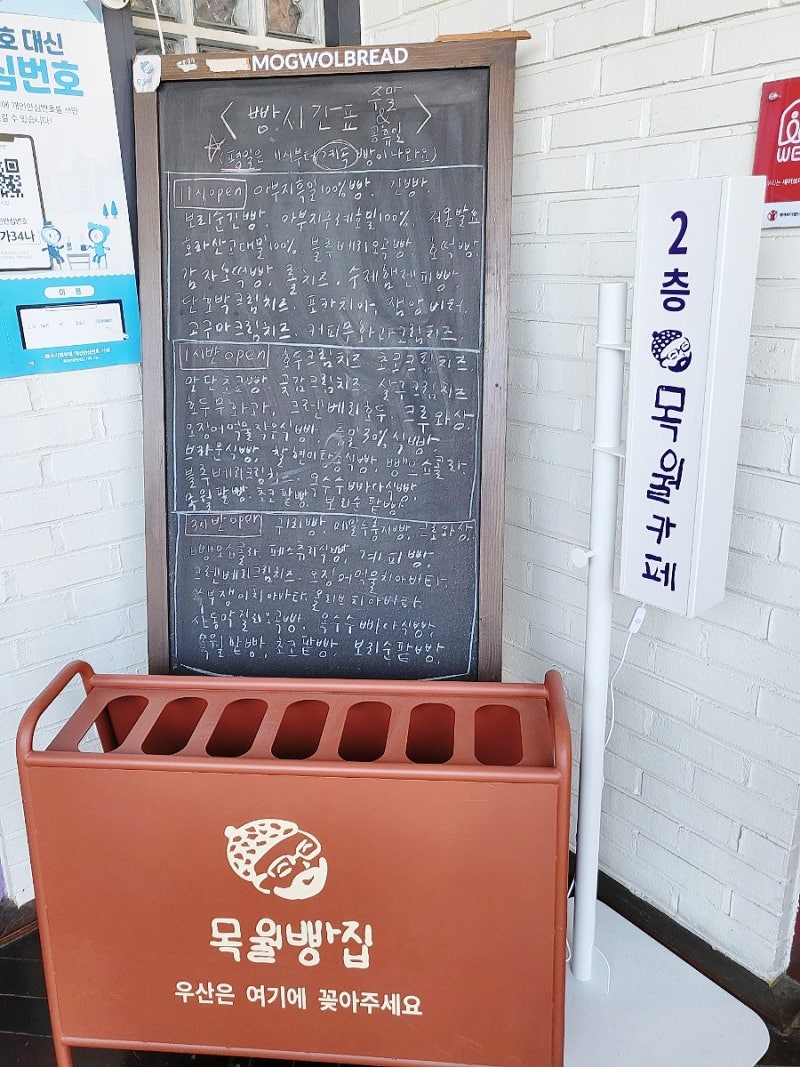 호 대신
심번호
MOGWOLBREAD
<빵시간표 주말 & 공휴일>
(평일은 11시부터 계속 빵이 나와요)
11시 open 아부지흑밀100%빵. 긴빵.
보리순긴빵. 아부지구례호밀100%. 저온발효
호라산고대밀100%. 블루베리오곡빵. 호떡빵.
감자호떡빵. 롤치즈. 수제햄렌피빵.
단호박크림치즈. 포카치아. 잠암버터.
고구마크림치즈. 커피무화과크림치즈.
1시반 open 호두크림치즈 초코크림치즈.
앙단초코빵. 곶감크림치즈. 살구크림치즈
호두무화과. 크렌베리호두. 크루와상.
오징어먹물작은식빵. 통밀30%식빵.
브라운식빵. 찰현미타송식빵. 빵오쇼콜라.
블루베리크림치즈. 옥수수빠다식빵.
목월팥빵. 초코팥빵. 보리순팥빵
3시반 open 귀리빵. 메밀누룽지빵. 크로와상.
빵오쇼콜라. 페스츄리식빵. 커피빵.
크렌베리크림치즈. 오징어먹물치아바타.
쑥부쟁이치아바타. 올리브치아바타.
산동막걸리오곡빵. 옥수수빠다식빵.
목월팥빵. 초코팥빵. 보리순팥빵.
2층 목월카페
목월빵집
우산은 여기에 꽂아주세요
가34나
이 용
WE